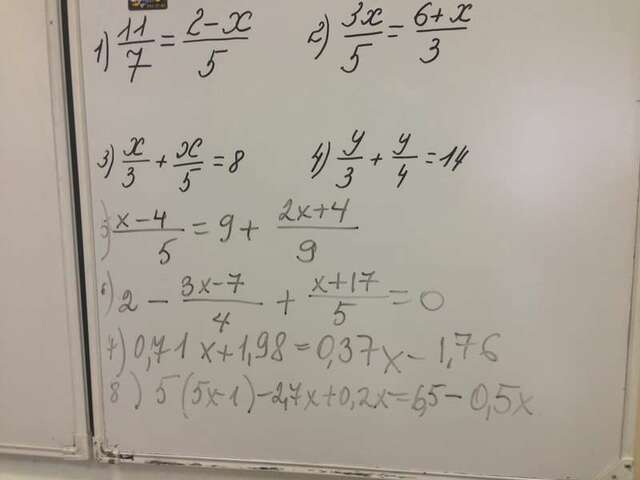 1) 11/7 = 2-x/5 2) 3x/5 = 6+x/3
3) x/3 + x/5 = 8 4) y/3 + y/4 = 14
5) x-4/5 = 9+ 2x+4/9
6) 2 - 3x-7/4 + x+17/5 = 0
7) 0,71x+1,98=0,37x-1,76
8) 5(5x-1)-2,7x+0,2x=6,5-0,5x